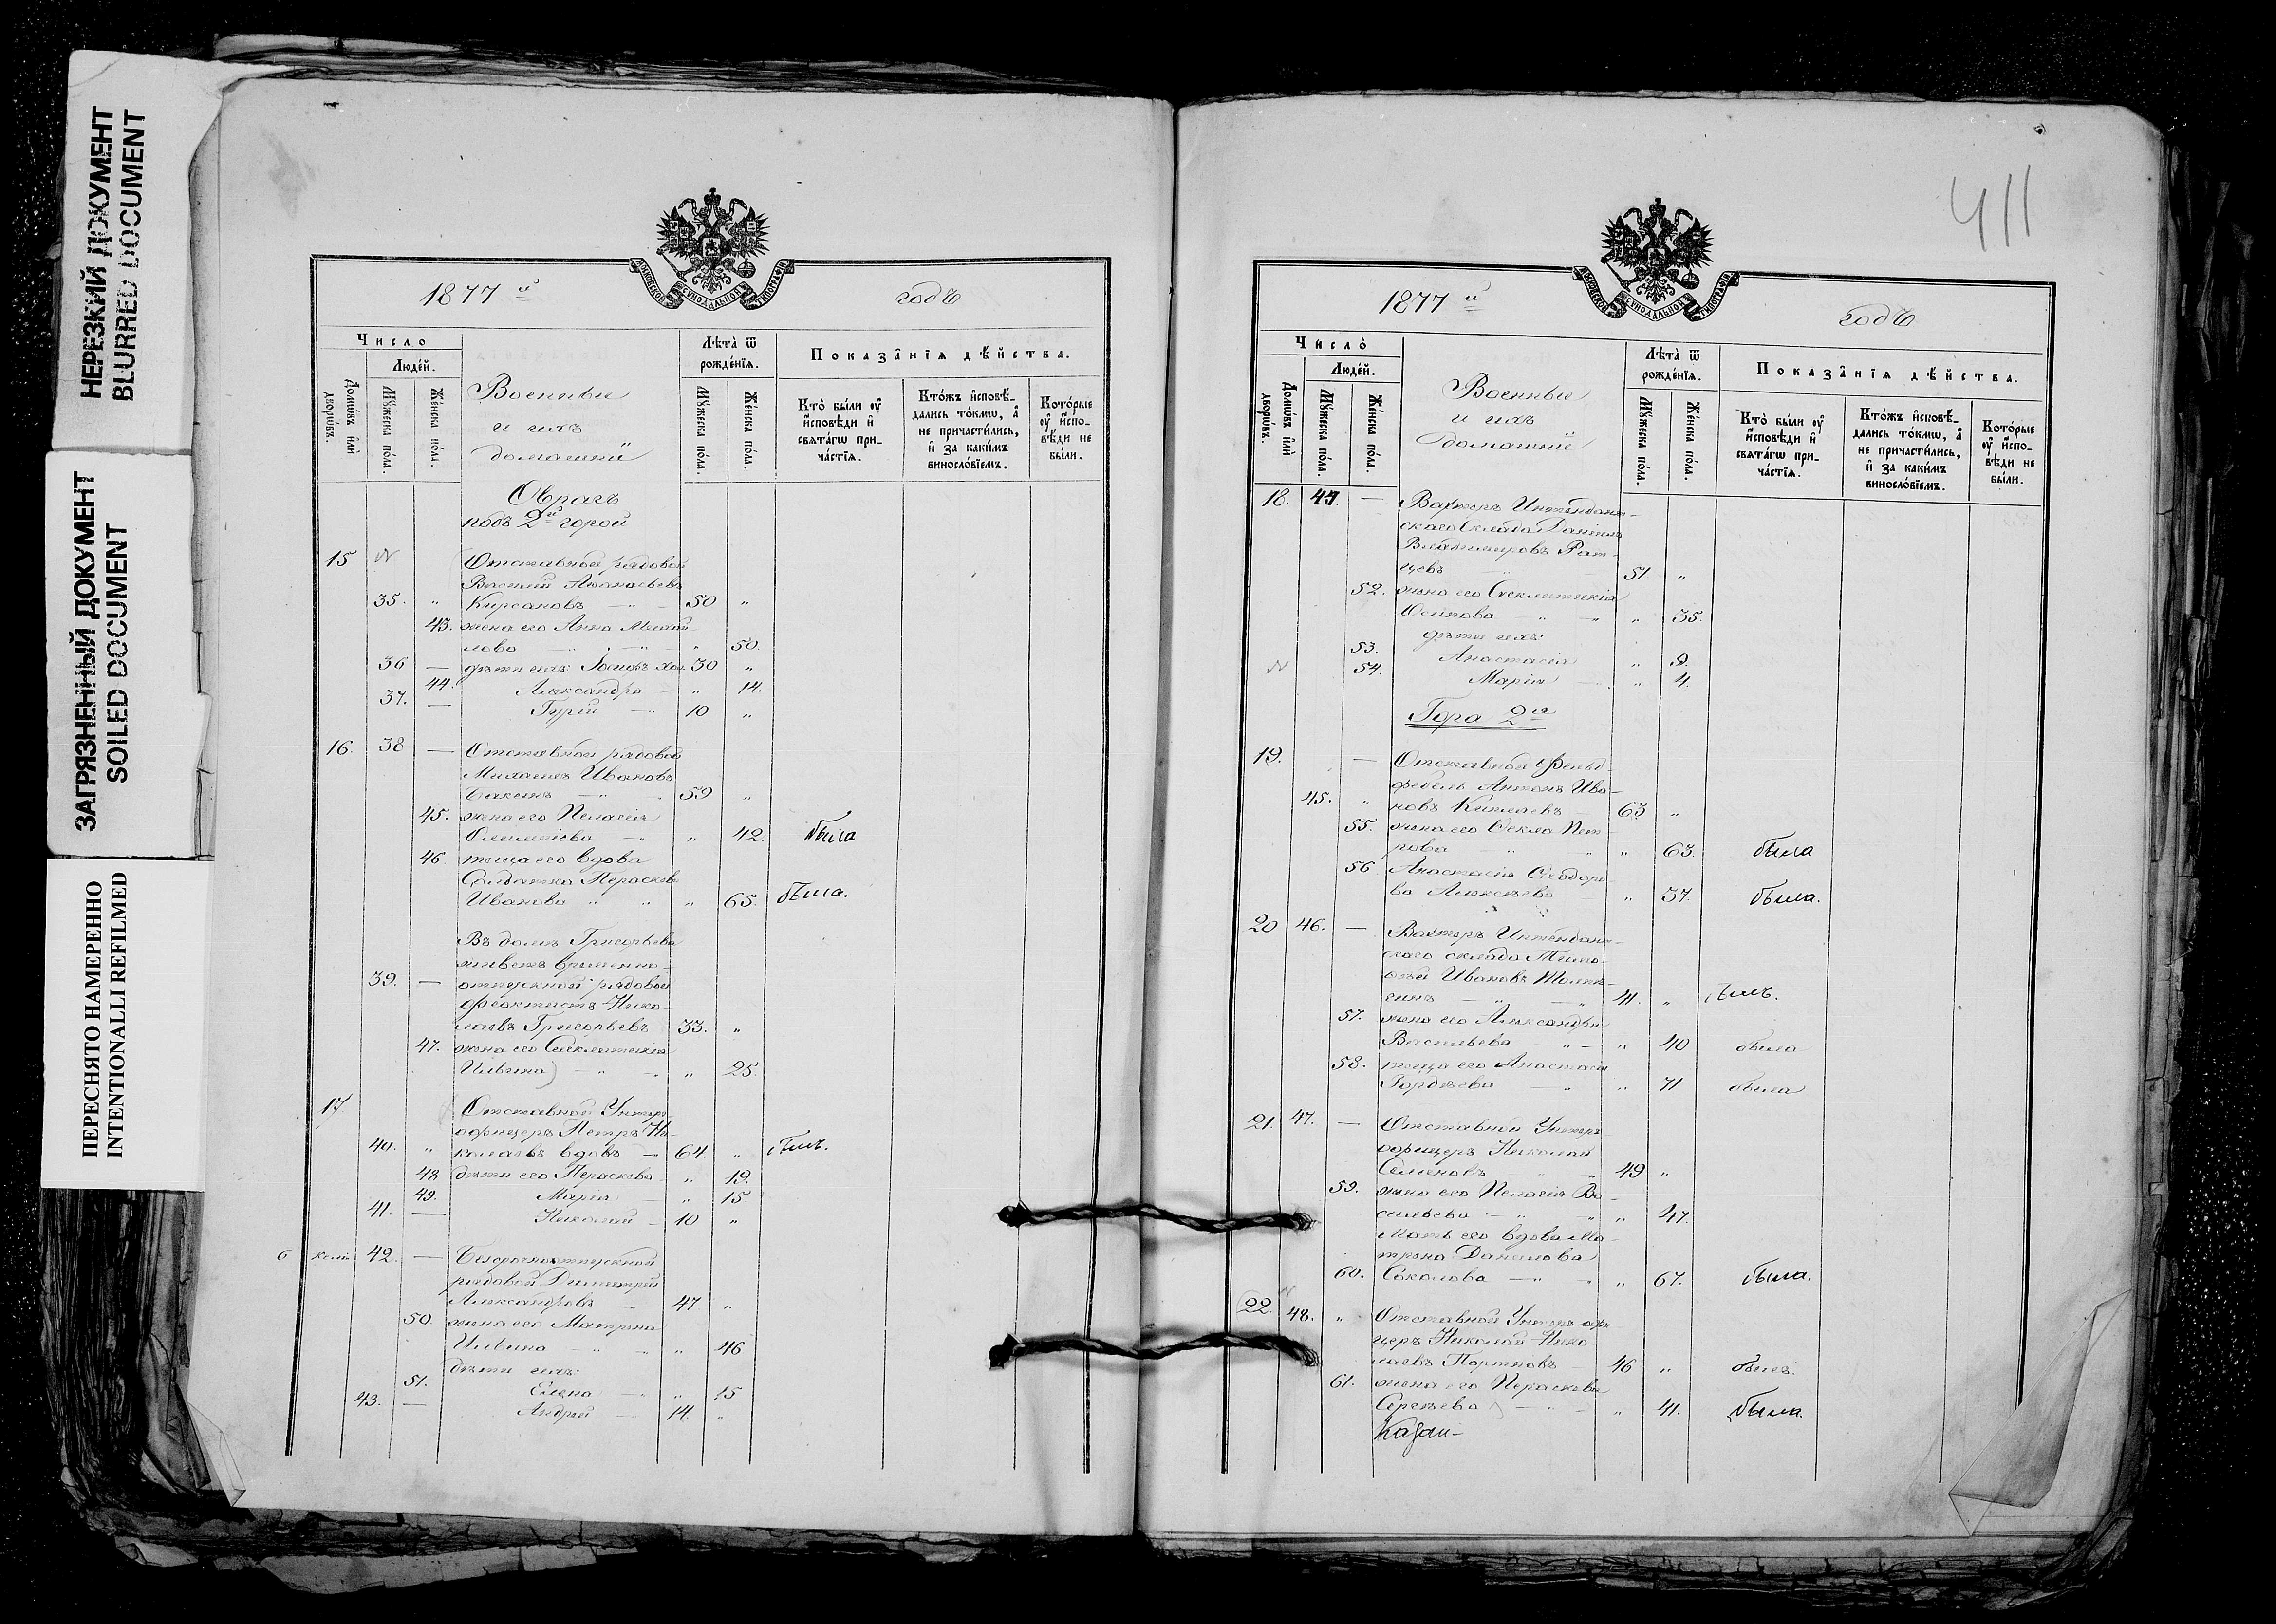 НЕРЕЗКИЙ ДОКУМЕНТ
BLURRED DOCUMENT
ЗАГРЯЗНЕННЫЙ ДОКУМЕНТ
SOILED DOCUMENT
ПЕРЕСНЯТО НАМЕРЕННО
INTENTIONALLI REFILMED
МОСКОВСКОЙ СѴНОДАЛЬНОЙ ТИПОГРАФІИ
1877 й годъ
Число
Людéй.
Домѡвъ и҆лѝ дворѡ́въ.
Мꙋ́жеска по́ла.
Же́нска по́ла.
Военные
и ихъ
домашніи
Лѣ́та ѿ рождéнїѧ.
Мꙋ́жеска по́ла.
Же́нска по́ла.
Показа̂нїѧ дѣ́йства.
Кто̀ бы́ли ᲂу҆ и҆сповѣди и҆ свѧта́гѡ причáстїѧ.
Кто́жъ и҆сповѣ́дались то́кмѡ, а҆ не причасти́лись, и҆ за каки́мъ винослóвїемъ.
Кото́рые ᲂу҆ и҆спо-вѣди не бы́ли.
Оврагъ
подъ 2й горой
15 Отставной рядовой
Василій Аѳанасьевъ
35. " Кирсановъ 50 "
43. жена его Анна Михай-
лова " 50.
36 — дѣти ихъ: Іосифъ хол. 30 "
44. Александра " 14.
37. — Гурій 10 "
16. 38 — Отставной рядовой
Михаилъ Ивановъ
59 "
45. жена его Пелагія
" 42. была
46. теща его вдова
Солдатка Параскева
Иванова " 65. была.
Въ домѣ Григорьева
живетъ временно-
39. — отпускной рядовой
Феоктистъ Нико-
лаевъ Григорьевъ 33. "
47. жена его
Ильина " 25.
17 Отставной Унтеръ-
офицеръ Петръ Ни-
40. " колаевъ вдовъ — 64. " былъ.
48 дѣти его Параскева " 19.
49. Марія " 15.
41. — Николай 10 "
6 42. — Безсрочноотпускной
рядовой Димитрій
Александровъ 47 "
50. жена его Матрона
Ильина " 46
дѣти ихъ:
51. Елена " 15
43. — Андрей 14. "
411
МОСКОВСКОЙ СѴНОДАЛЬНОЙ ТИПОГРАФІИ
1877 й годъ
Число̀
Людéй.
Домѡвъ и҆лѝ дворѡ́въ.
Мꙋ́жеска по́ла.
Же́нска по́ла.
Военные
и ихъ
домашніе
Лѣ́та ѿ рождéнїѧ.
Мꙋ́жеска по́ла.
Же́нска по́ла.
Показа̂нїѧ дѣ́йства.
Кто̀ бы́ли ᲂу҆ и҆сповѣди и҆ свѧта́гѡ причáстїѧ.
Кто́жъ и҆сповѣ́дались то́кмѡ, а҆ не причасти́лись, и҆ за каки́мъ винослóвїемъ.
Кото́рые ᲂу҆ и҆спо-вѣди не бы́ли.
18. — Вахтеръ Интендант-
скаго склада Даніилъ
Владимировъ
51 "
52. жена его
Осипова " 35.
дѣти ихъ:
53. Анастасія " 9.
54. Марія " 4.
Гора 2я
19. — Отставной Фельд-
фебель Антонъ Ива-
45. " новъ 63 "
55. жена его Ѳекла Пет-
рова " 63. была
56 Анастасія Ѳеодоро-
ва Алексѣева " 37. была.
20 46. — Вахтеръ Интендант-
скаго склада Тимо-
ѳей Ивановъ
41. " былъ.
57. жена его Александра
Васильева " 40 была
58. теща его Анастасія
Гордѣева " 71 была
21. 47. — Отставной Унтеръ
офицеръ Николай
Семеновъ 49 "
59. жена его Пелагія Ва-
сильева " 47.
Мать его вдова Ма-
трона Данилова
60. Соколова " 67. была.
22. 48. " Отставной Унтеръ-офи-
церъ Николай Нико-
лаевъ Портновъ 46 " былъ.
61. жена его Параскева
Сергѣева " 41. была.
Казан-